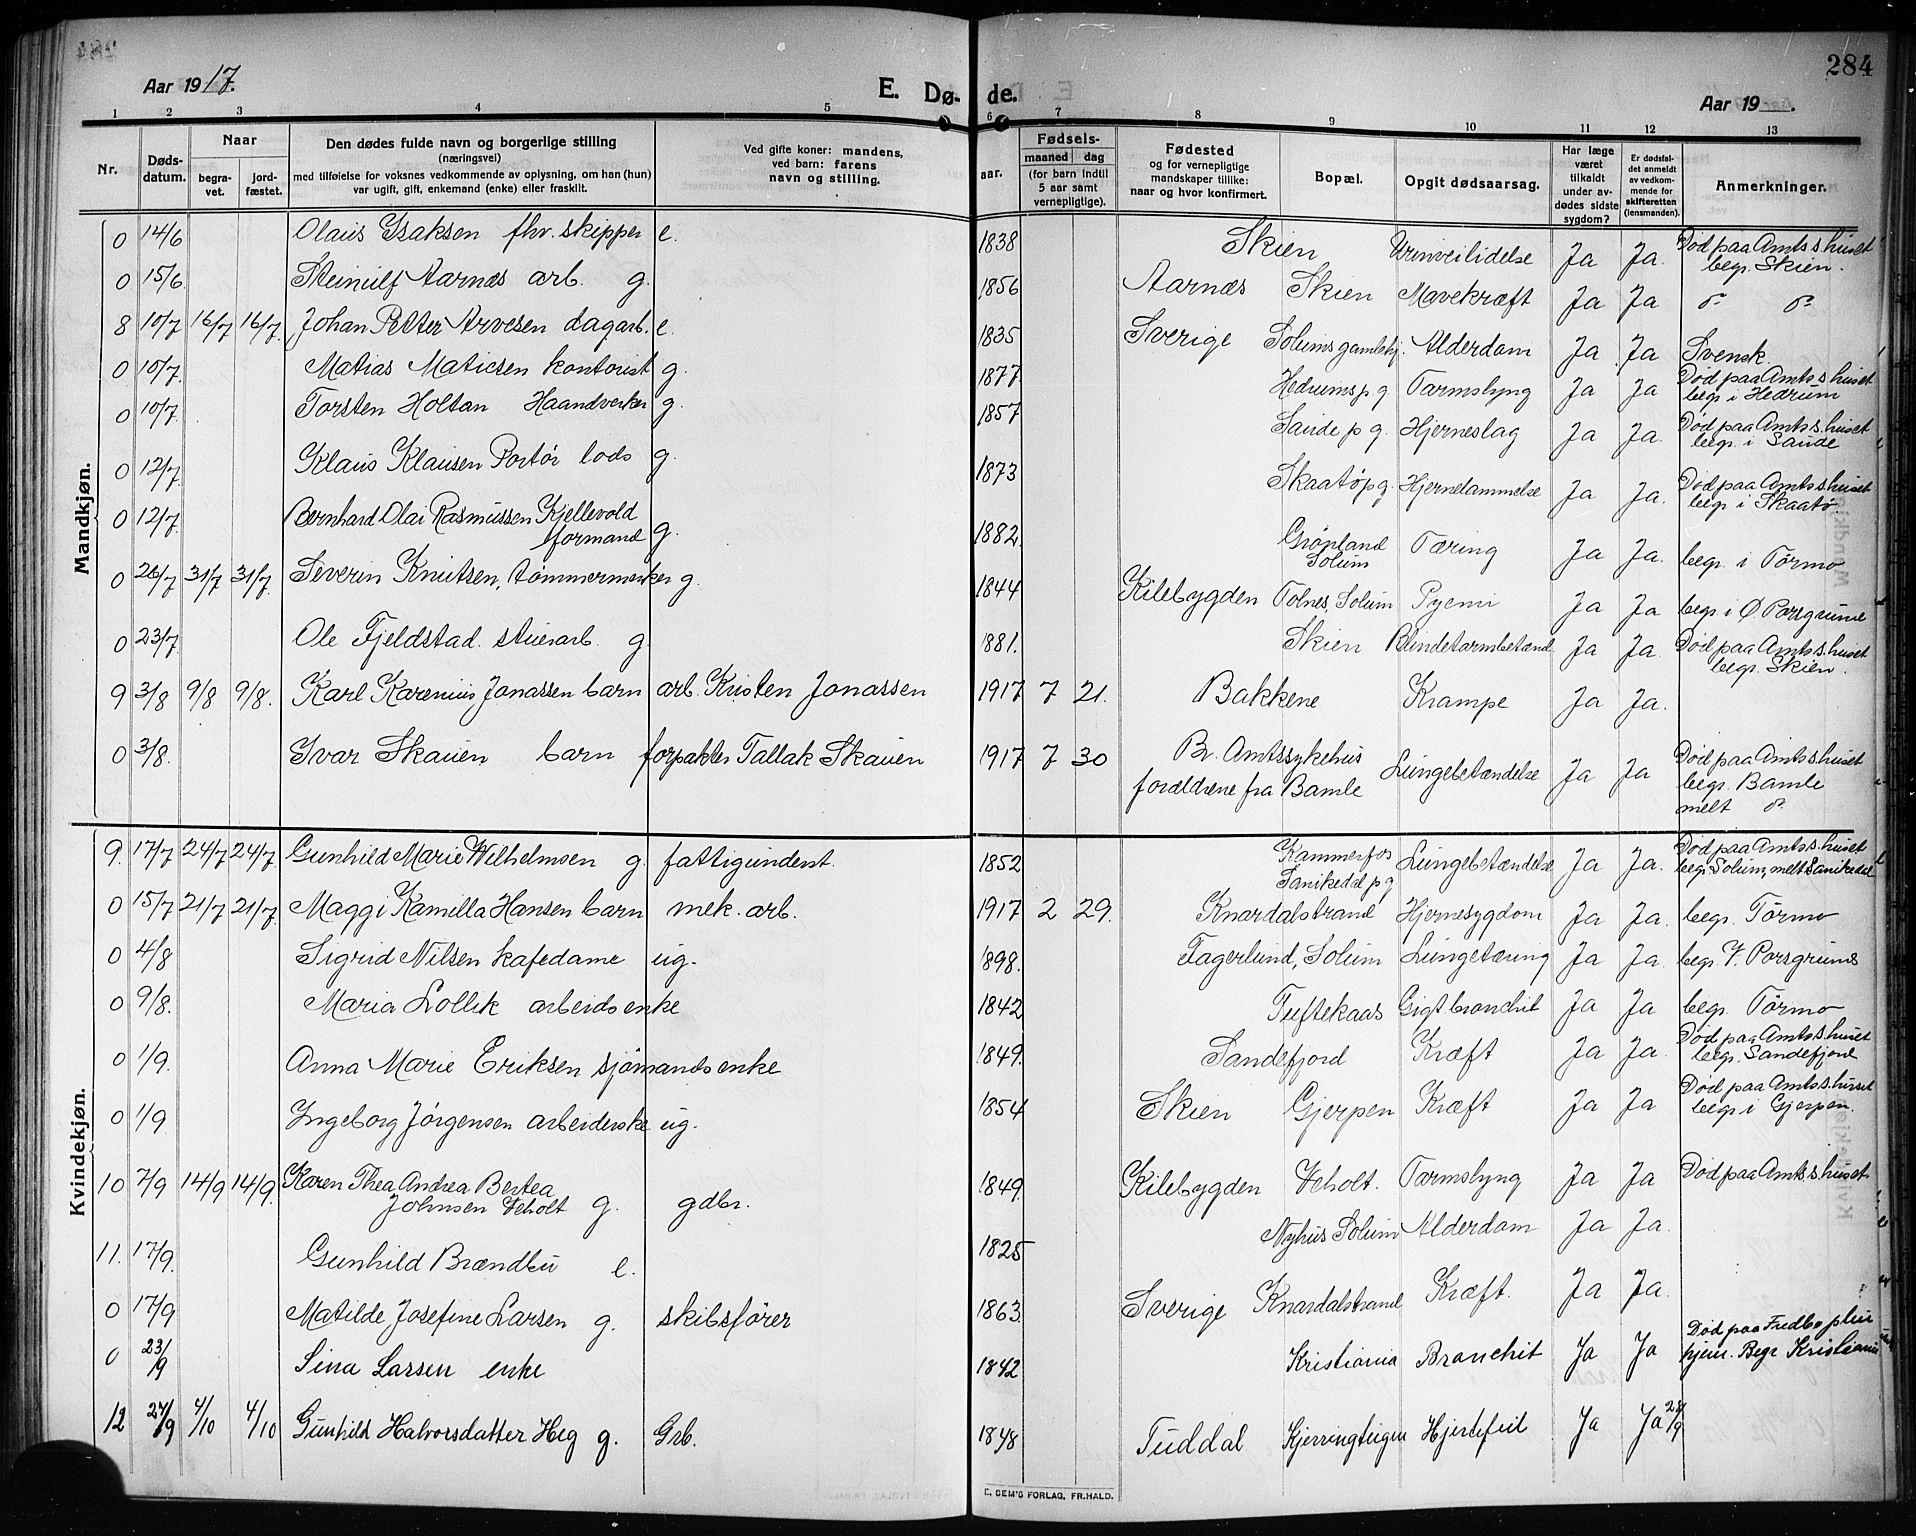 284
Aar 1917.
E. Dø- de.
Aar 19 .
1 2 3 4 5 6 7 8 9 10 11 12 13
Nr.
Døds-
datum.
Naar
begra-
vet.
jord-
fæstet.
Den dødes fulde navn og borgerlige stilling
(næringsvei)
med tilføielse for voksnes vedkommende av oplysning, om han (hun)
var ugift, gift, enkemand (enke) eller fraskilt.
Ved gifte koner: mandens,
ved barn: farens
navn og stilling.
aar.
Fødsels-
maaned dag
(for barn indtil
5 aar samt
vernepligtige).
Fødested
og for vernepligtige
mandskaper tillike:
naar og hvor konfirmert.
Bopæl.
Opgit dødsaarsag.
Har læge
været
tilkaldt
under av-
dødes sidste
sygdom?
Er dødsfal-
det anmeldt
av vedkom-
mende for
skifteretten
(lensmanden).
Anmerkninger.
Mandkjøn.
0 14/6 Olaus Isaksen fhv. skipper e. 1838 Skien Urinveilidelse Ja Ja. Død paa Amts s. huset
begr. Skien.
0 15/6 Steinulf Aarnæs arb. g. 1856 Aarnæs Skien Mavekræft Ja Ja do do
8 10/7 16/7 16/7. Johan Petter Arvesen dagarb. e. 1835 Sverige Solums gamlehj. Alderdom Ja Ja Svensk.
0 10/7. Matias Matiesen kontorist g. 1877 Hedrums p.g. Tarmslyng Ja Ja Død paa Amts s. huset
begr. i Hedrum
0 10/7. Torsten Holtan Haandverker g. 1857 Saude p g. Hjerneslag Ja Ja. Død paa Amts s. huset
begr. i Saude
0 12/7. Klaus Klausen Portør lods g. 1873 Skaatøp g. Hjernelammelse Ja Ja. Død paa Amts s. huset
begr. i Skaatø.
0 12/7. Bernhard Olai Rasmussen Kjellevold
formand g. 1882. Grønland
Solum Tæring Ja Ja. begr. i Tørmo
0 26/7 31/7 31/7. Severin Knutsen, tømmermerker g. 1844 Kilebygden Tolnes, Solum Pyemi Ja Ja begr. i Ø. Porsgrund
0 23/7. Ole Fjeldstad. stuerarb. g. 1881. Skien Blindetarmbetænd. Ja Ja. Død paa Amts s. huset
begr. Skien.
9 3/8 9/8 9/8. Karl Karenius Jonassen barn arb. Kristen Jonassen 1917 7 21. Bakkene Krampe Ja Ja.
0 3/8. Ivar Skauen barn forpakter Tallak Skauen 1917 7 30 Br. Amtssykehus
forældrene fra Bamle Lungebetændelse Ja Ja Død paa Amts s. huset
begr. Bamle
melt do
Kvindekjøn.
9. 17/7 24/7 24/7. Gunhild Marie Wilhelmsen g. fattigunderst. 1852 Kammerfos
Sanikedal p g Lungebetændelse Ja Ja. Død paa Amts s. huset
begr. Solum, melt Sanikedal
0 15/7 21/7 21/7 Maggi Kamilla Hansen barn mek. arb. 1917 2 29. Knardalstrand Hjernesygdom Ja Ja. begr. Tørmo
0 4/8 Sigrid Nilsen kafedame ug. 1898. Fagerlund, Solum Lungetæring Ja Ja. begr. V. Porsgrund
0 9/8. Maria Lollik arbeids enke 1842 Tuftekaas Gigt bronchit Ja Ja begr. Tørmo
0 1/9. Anna Marie Eriksen sjømands enke 1849. Sandefjord Kræft Ja Ja. Død paa Amts s. huset
begr. Sandefjord
0 1/9. Ingeborg Jørgensen arbeiderske ug. 1854 Skien Gjerpen Kræft Ja Ja. Død paa Amts s. huset
begr. i Gjerpen.
10 7/9 14/9 14/9. Karen Thea Andrea Bertea
Johnsen Veholt g. gdbr. 1849. Kilebygden Veholt. Tarmslyng Ja Ja Død paa Amts s. huset
11. 17/9. Gunhild Brændbu e. 1825 Nyhus Solum Alderdom Ja Ja.
0 17/9 Matilde Josefine Larsen g. skibsfører 1863. Sverige Knardalstrand Kræft. Ja Ja.
0 23/9 Sina Larsen enke 1842 Kristiania Bronchit Ja Ja Død paa Fredbo pleie
hjem. Begr Kristiania
12 27/9 4/10 4/10 Gunhild Halvorsdatter Heg g. Grb. 1848 Tuddal Kjerringteigen Hjertefeil Ja Ja 28/9
E. SEM'S FORLAG, FR.HALD.